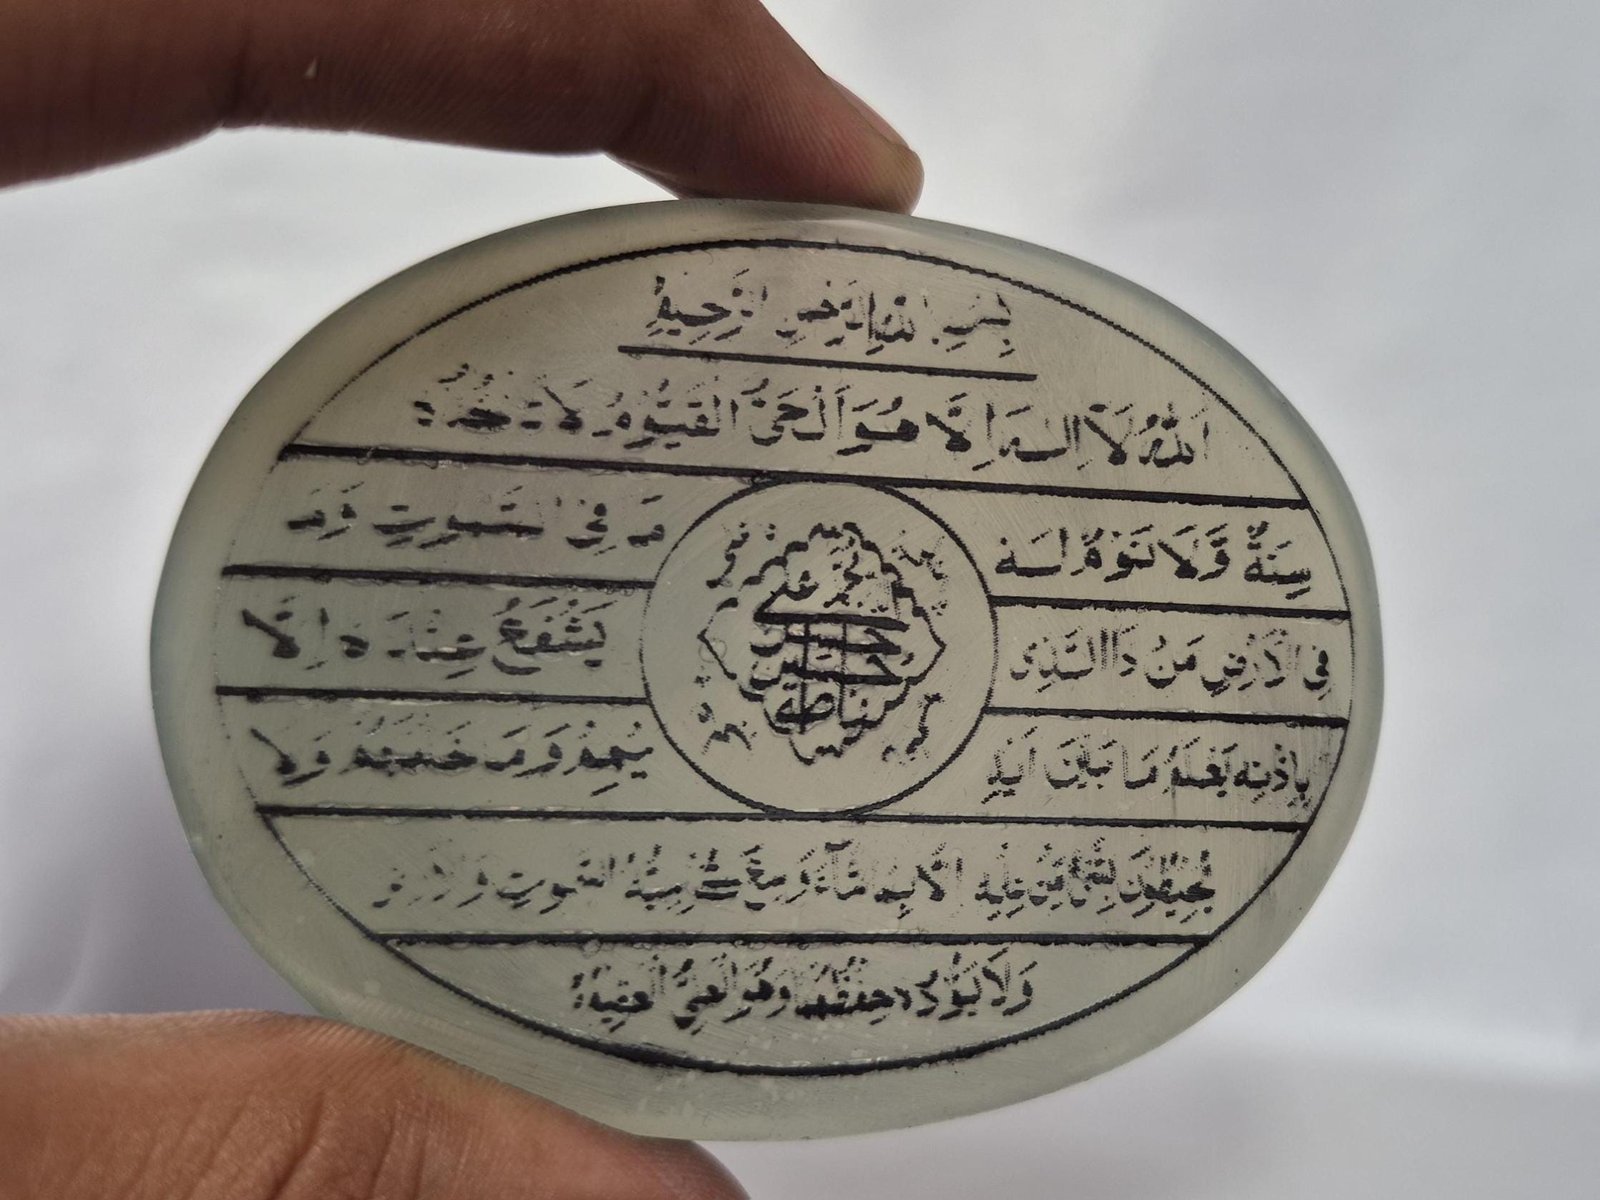 بِسْمِ اللهِ الرَّحْمٰنِ الرَّحِيْمِ
اَللهُ لَآ اِلٰهَ اِلَّا هُوَ اَلْحَىُّ الْقَيُّوْمُ لَا تَأْخُذُهُ
سِنَةٌ وَّلَا نَوْمٌ لَهُ مَا فِى السَّمٰوٰتِ وَمَا
فِى الْاَرْضِ مَنْ ذَا الَّذِى يَشْفَعُ عِنْدَهُ اِلَّا
بِاِذْنِهِ يَعْلَمُ مَا بَيْنَ اَيْدِ يْهِمْ وَمَا خَلْفَهُمْ وَلَا
يُحِيْطُوْنَ بِشَىْءٍ مِّنْ عِلْمِهِ اِلَّا بِمَا شَآءَ وَسِعَ كُرْسِيُّهُ السَّمٰوٰتِ وَالْاَرْضَ
وَلَا يَؤُدُهُ حِفْظُهُمَا وَهُوَ الْعَلِىُّ الْعَظِيْمُ
محمد علي
حسن
حسين
فاطمة